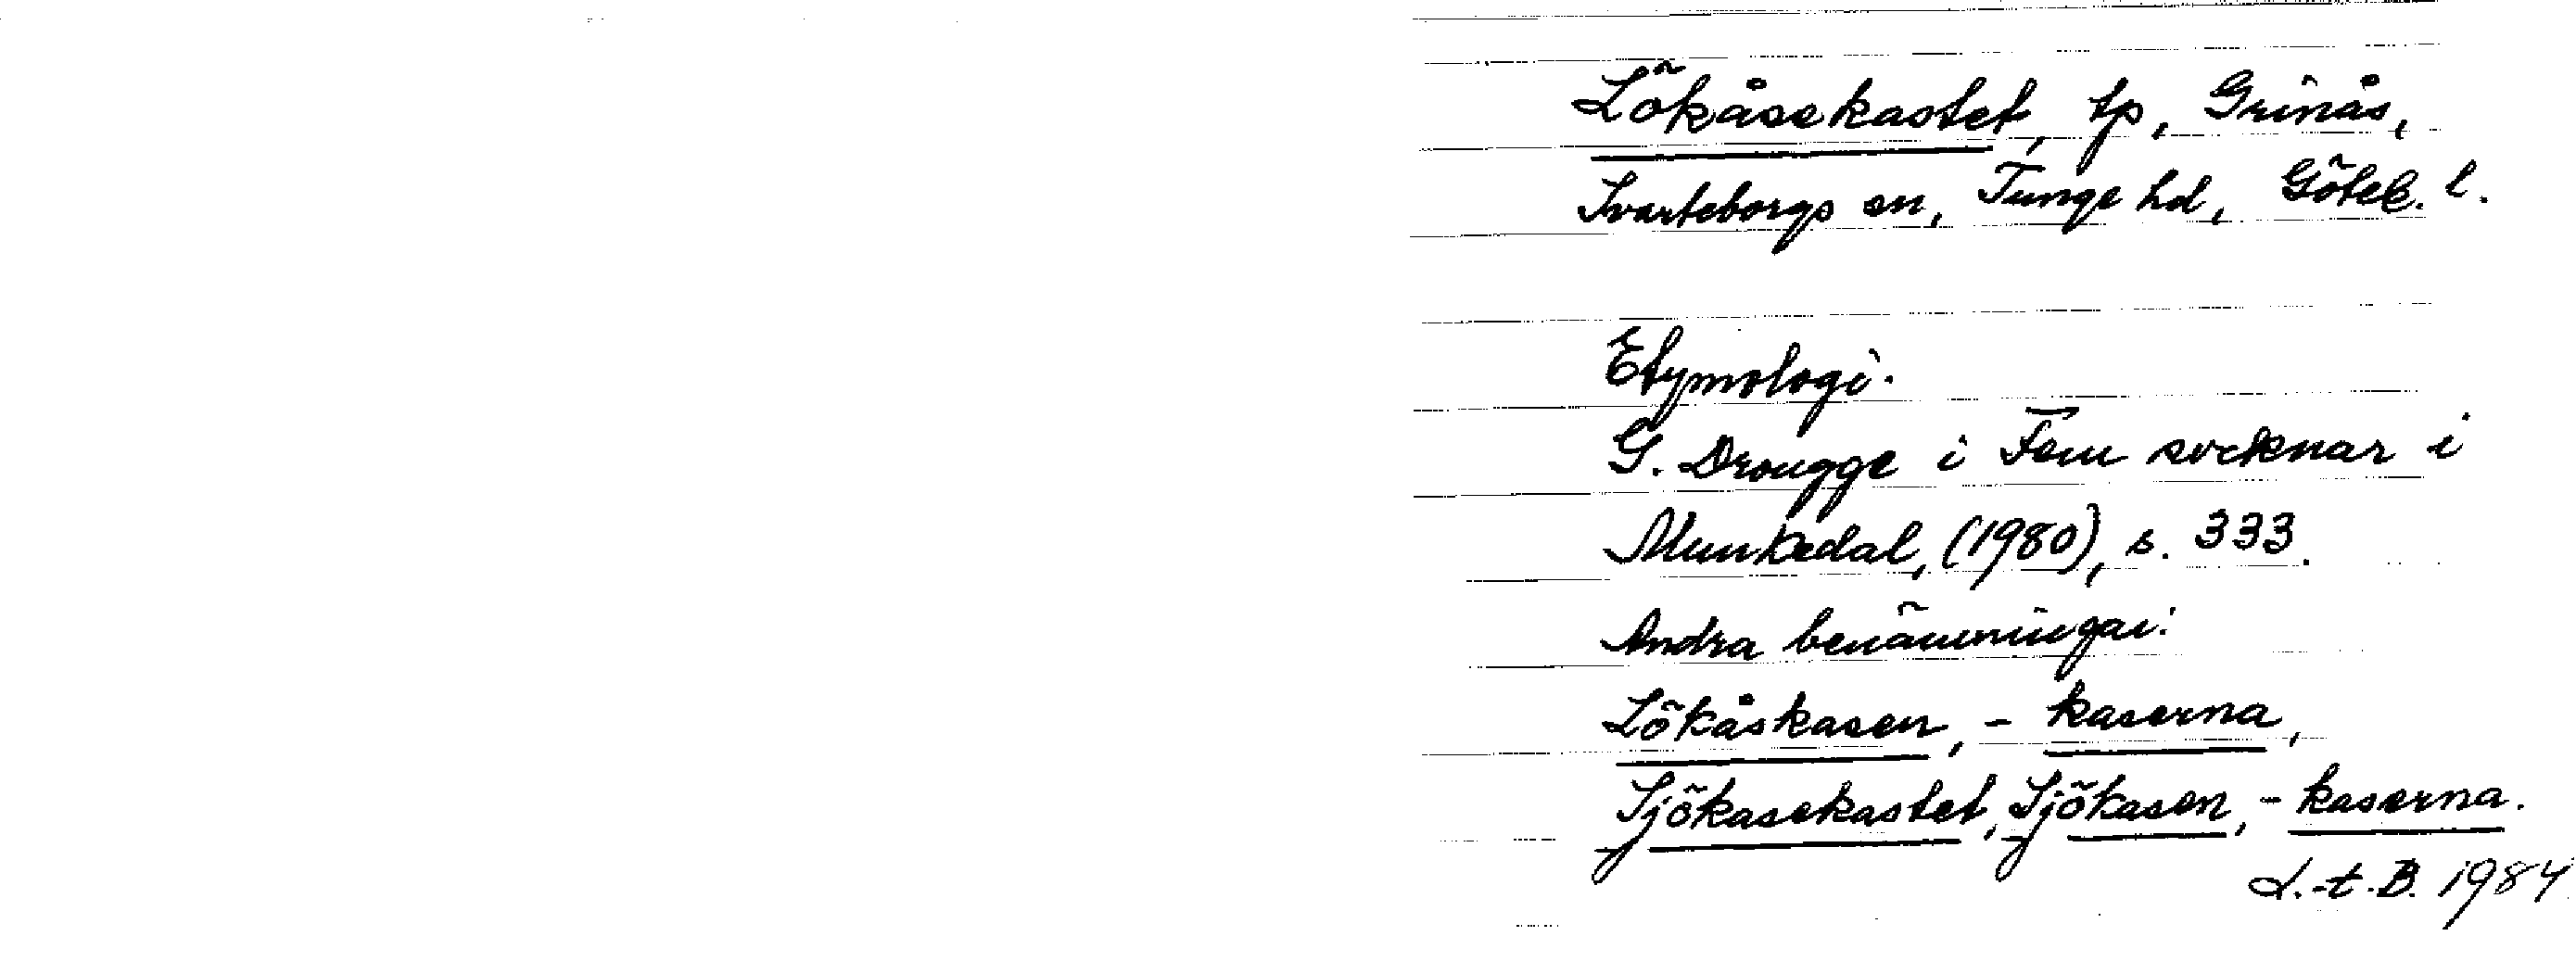 Lökåsekastet, tp, Grinås,
Svarteborgs sn, Tunge hd, Göteb. l.
Etymologi.
G. Drougge i Fem socknar i
Munkedal, (1980), s. 333.
Andra benämningar:
Lökåskasen, - kaserna,
Sjökasekastet, Sjökasen, - kaserna.
L.-t. B. 1984